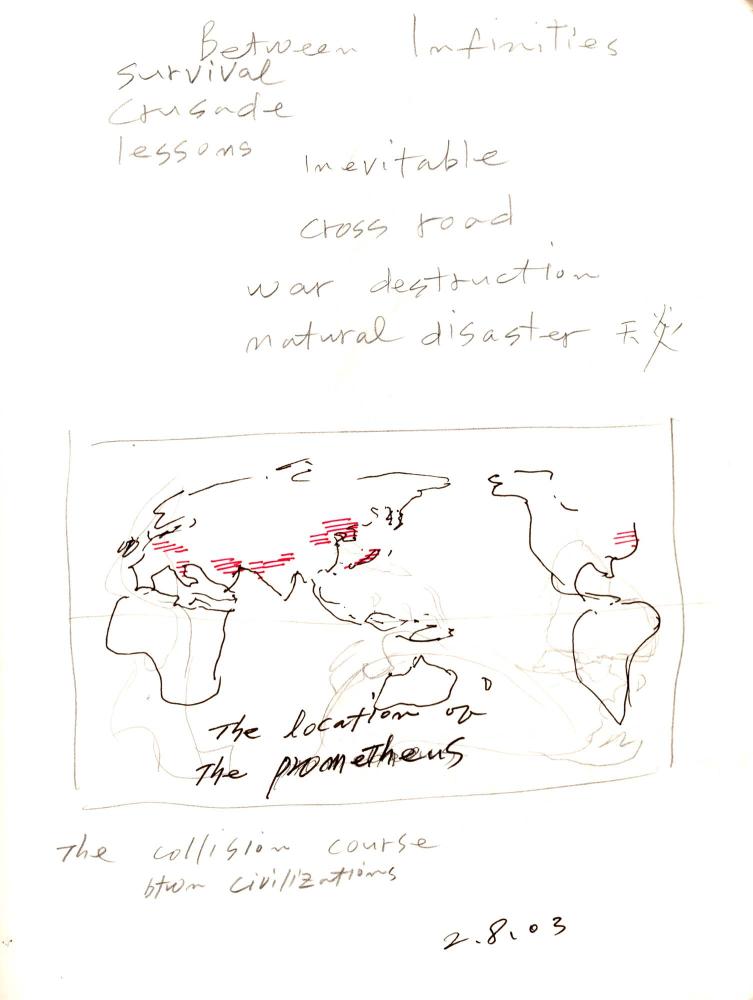 Between Infinities
survival
Crusade
lessons
Inevitable
cross road
war destruction
natural disaster 天災
The location of
The prometheus
The collision course
btwn civilizations
2.8.03